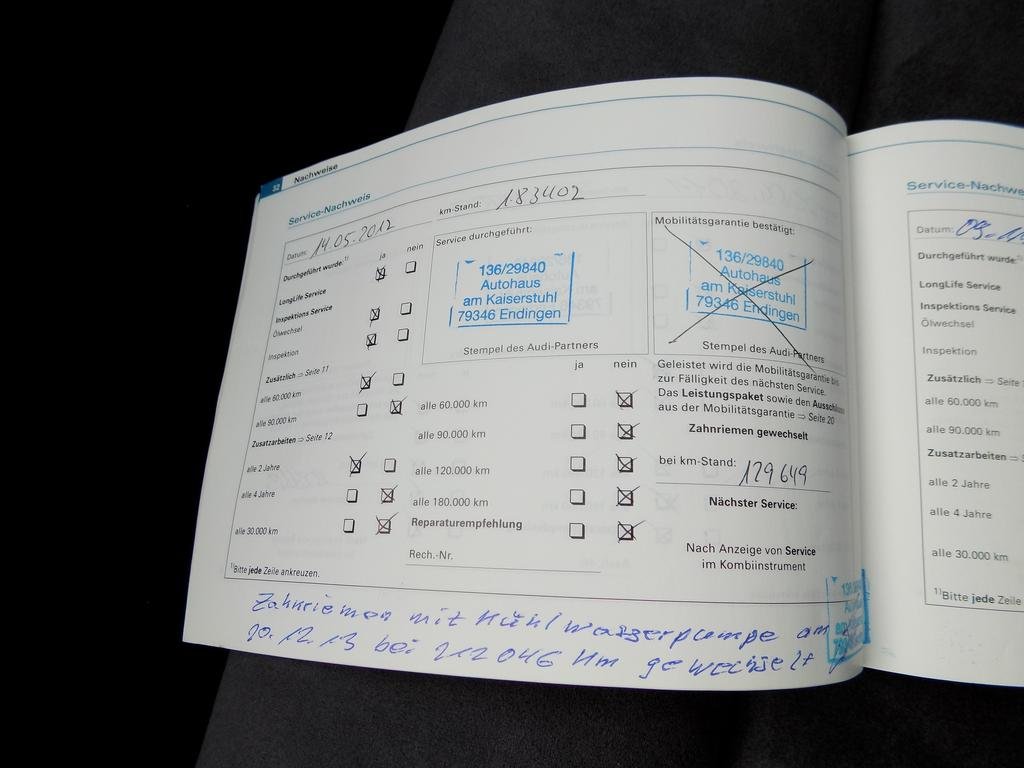 32 Nachweise
Service-Nachweis
Datum: 14.05.2012
km-Stand: 183402
ja nein
Durchgeführt wurde:¹⁾
LongLife Service
Inspektions Service
Ölwechsel
Inspektion
Zusätzlich ⇒ Seite 11
alle 60.000 km
alle 90.000 km
Zusatzarbeiten ⇒ Seite 12
alle 2 Jahre
alle 4 Jahre
alle 30.000 km
¹⁾Bitte jede Zeile ankreuzen.
Service durchgeführt:
136/29840
Autohaus
am Kaiserstuhl
79346 Endingen
Stempel des Audi-Partners
ja nein
alle 60.000 km
alle 90.000 km
alle 120.000 km
alle 180.000 km
Reparaturempfehlung
Rech.-Nr.
Mobilitätsgarantie bestätigt:
136/29840
Autohaus
am Kaiserstuhl
79346 Endingen
Stempel des Audi-Partners
Geleistet wird die Mobilitätsgarantie bis
zur Fälligkeit des nächsten Service.
Das Leistungspaket sowie den Ausschluss
aus der Mobilitätsgarantie ⇒ Seite 20
Zahnriemen gewechselt
bei km-Stand: 129649
Nächster Service:
Nach Anzeige von Service
im Kombiinstrument
Zahnriemen mit Kühlwasserpumpe am
20.12.13 bei 212046 Km gewechselt
Service-Nachwe
Datum:
Durchgeführt wurde:
LongLife Service
Inspektions Service
Ölwechsel
Inspektion
Zusätzlich ⇒ Seite
alle 60.000 km
alle 90.000 km
Zusatzarbeiten ⇒
alle 2 Jahre
alle 4 Jahre
alle 30.000 km
¹⁾Bitte jede Zeile